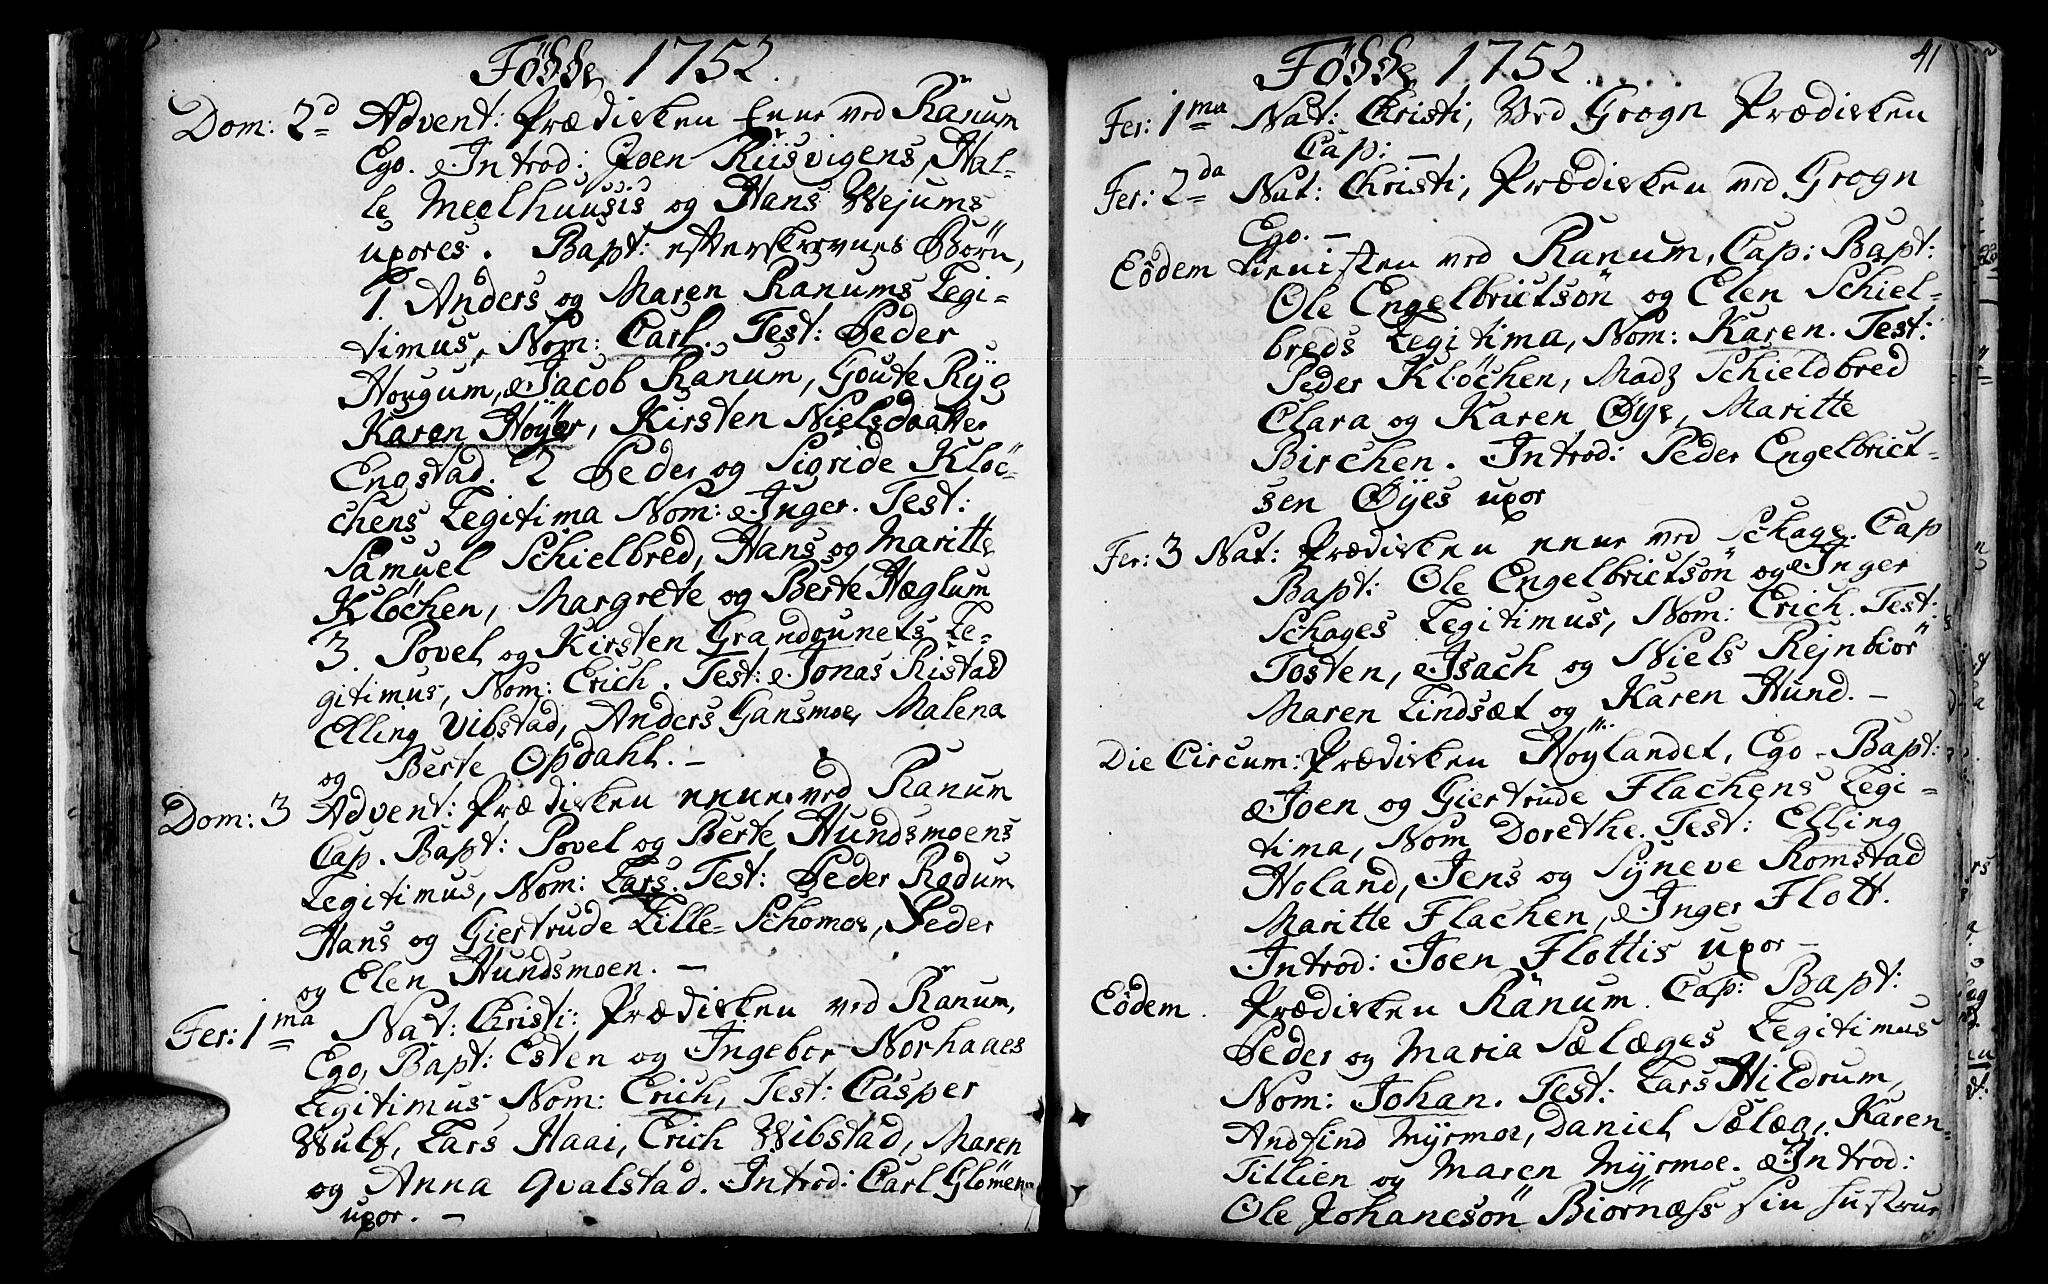 Födde 1752.
Dom: 2d Advent: Prædicken tenn ved Ranum
Ego. Introd: Joen Riisvigens, Hal-
le Meelhuusis og Hans Wejums
uxores. Bapt: efterskrevnes Börn,
1. Anders og Maren Ranums Legi-
timus, Nom: Carl. Test: Peder
Hougum, Jacob Ranum, Goute Ryg
Karen Höyer, Kirsten Nielsdaatter
Engstad. 2 Peder og Sigride Klöc-
chens Legitima Nom: Inger. Test:
Samuel Schielbred, Hans og Maritte
Klöchen, Margrete og Berte Hæglum
3. Povel og Kirsten Grandgunets Le-
gitimus, Nom: Erich. Test: Jonas Ristad
Elling Vibstad, Anders Gansmoe, Malena
og Berte Opdahl. —
Dom: 3 Advent: Prædicken ved Ranum
Cap. Bapt: Povel og Berte Hundsmoens
Legitimus, Nom: Lars. Test: Peder Rodum
Hans og Giertrude Lille-Schomoe, Peder
og Elen Hundsmoen. —
Fer: 1ma Nat: Christi: Prædicken ved Ranum,
Ego, Bapt: Esten og Ingebor Norhaaes
Legitimus Nom: Erich, Test: Casper
Wulf, Lars Haai, Erich Wibstad, Maren
og Anna Qvalstad. Introd: Carl Glömen
uxor. —
Födde 1752.
41
Fer: 1ma Nat: Christi, Ved Grogn Prædicken
Cap: —
Fer: 2da Nat: Christi, Prædicken ved Grogn
Ego. —
Eödem ved Ranum, Cap: Bapt:
Ole Engelbrictsön og Elen Schiel-
breds Legitima, Nom: Karen. Test:
Peder Klöchen, Madz Schieldbred
Clara og Karen Øye, Maritte
Birchen. Introd: Peder Engelbrict-
sen Øyes uxor
Fer: 3 Nat: Prædicken ved Schage. Cap
Bapt: Ole Engelbrictsön og Inger
Schages Legitimus, Nom: Erich. Test:
Tosten, Isach og Niels Rejnbiör
Maren Lindsæt og Karen Hund. —
Die Circum: Prædicken Höylandet, Ego - Bapt:
Joen og Giertrude Flachens Legi-
tima, Nom Dorethe. Test: Elling
Holand, Jens og Syneve Romstad
Maritte Flachen, Inger Flott.
Introd: Joen Flottis uxor —
Eödem. Prædicken Ranum. Cap: Bapt:
Peder og Maria Sælæges Legitimus
Nom: Johan. Test: Lars Hildrum,
Andfind Myrmoe, Daniel Sælæg, Karen
Tillien og Maren Myrmoe. Introd:
Ole Johanesön Biornæss sin hustrue